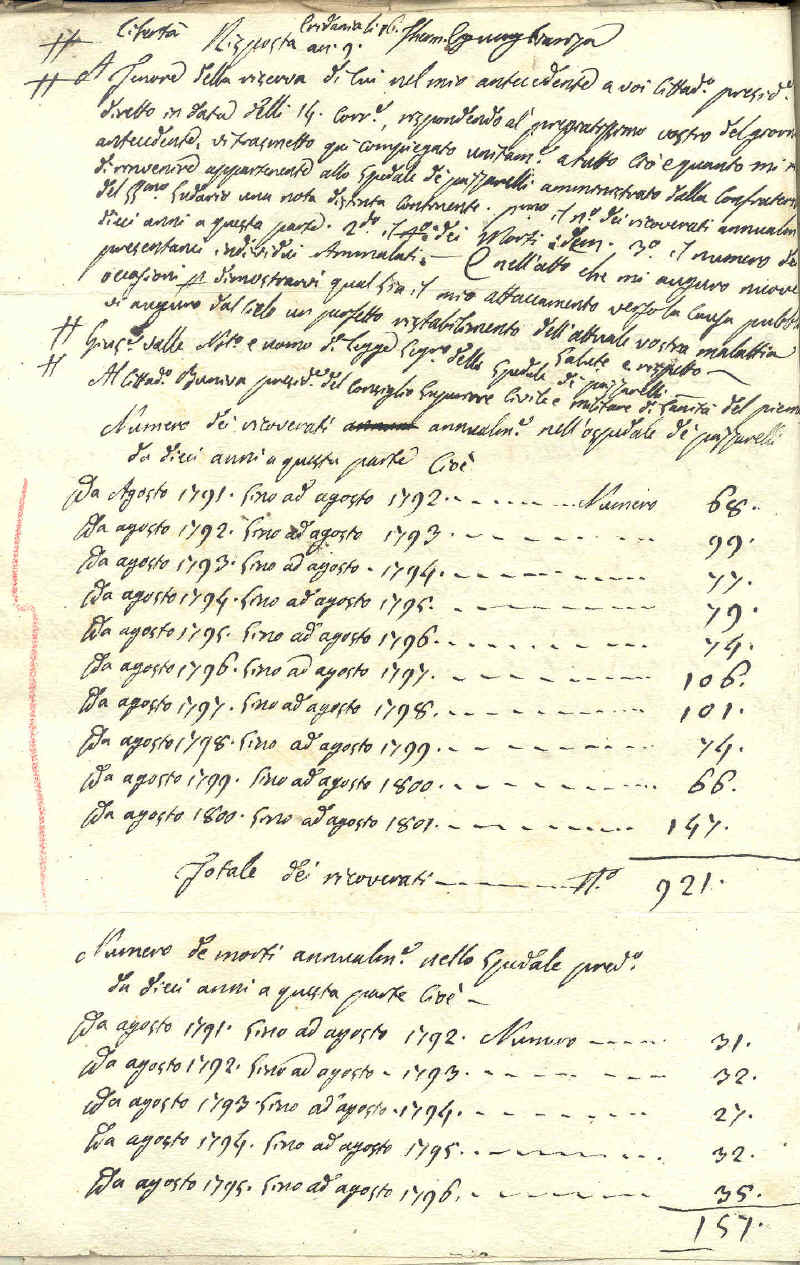 Libertà
Risposta an. 9.
A Tenore della riserva di cui nel mio antecedente a voi Cittad.º presid.e
diretto in data delli 14. Corr.e, rispondendo al pregiatissimo vostro del giorno
antecedente, vi trasmetto qui compiegato unitam.e a tutto ciò e quanto mi
di rinvenire appartenente allo Spedale de' pazzarelli amministrato dalla Confratern
del SS.mo Sudario una nota distinta Continente. p.mo il nº dei ricoverati annualm
dieci anni a questa parte. 2.do il nº dei Morti idem. 3º il numero de
presentanei individui Ammalati. E nell'atto che mi auguro nuove
occasioni p dimostrarvi qual sia il mio attaccamento verso la Causa pub
vi auguro dal Cielo un perfetto ristabilimento dell'attuale vostra malattia
Salute e rispetto
valle Not.o e uomo di legge Segr.o dello Spedale de' pazzarelli
Al Cittad.º Buniva presid.e del Consiglio Superiore Civile e militare di Sanità del piem
Numero dei ricoverati annualm.e nell'ospedale de' pazzarelli
da dieci anni a questa parte Cioè
Da Agosto 1791. sino ad agosto 1792. Numero 68.
Da agosto 1792. sino ad agosto 1793. 99.
Da agosto 1793. sino ad agosto 1794. 77.
Da agosto 1794. sino ad agosto 1795. 79.
Da agosto 1795. sino ad agosto 1796. 74.
Da agosto 1796. sino ad agosto 1797. 106.
Da agosto 1797. sino ad agosto 1798. 101.
Da agosto 1798. sino ad agosto 1799. 74.
Da agosto 1799. sino ad agosto 1800. 66.
Da agosto 1800. sino ad agosto 1801. 147.
Totale dei ricoverati N.º 921.
Numero de morti annualm.e nello Spedale pred.º
da dieci anni a questa parte Cioè
Da agosto 1791. sino ad agosto 1792. Numero 31.
Da agosto 1792. sino ad agosto 1793. 32.
Da agosto 1793. sino ad agosto 1794. 27.
Da agosto 1794. sino ad agosto 1795. 32.
Da agosto 1795. sino ad agosto 1796. 35.
157.